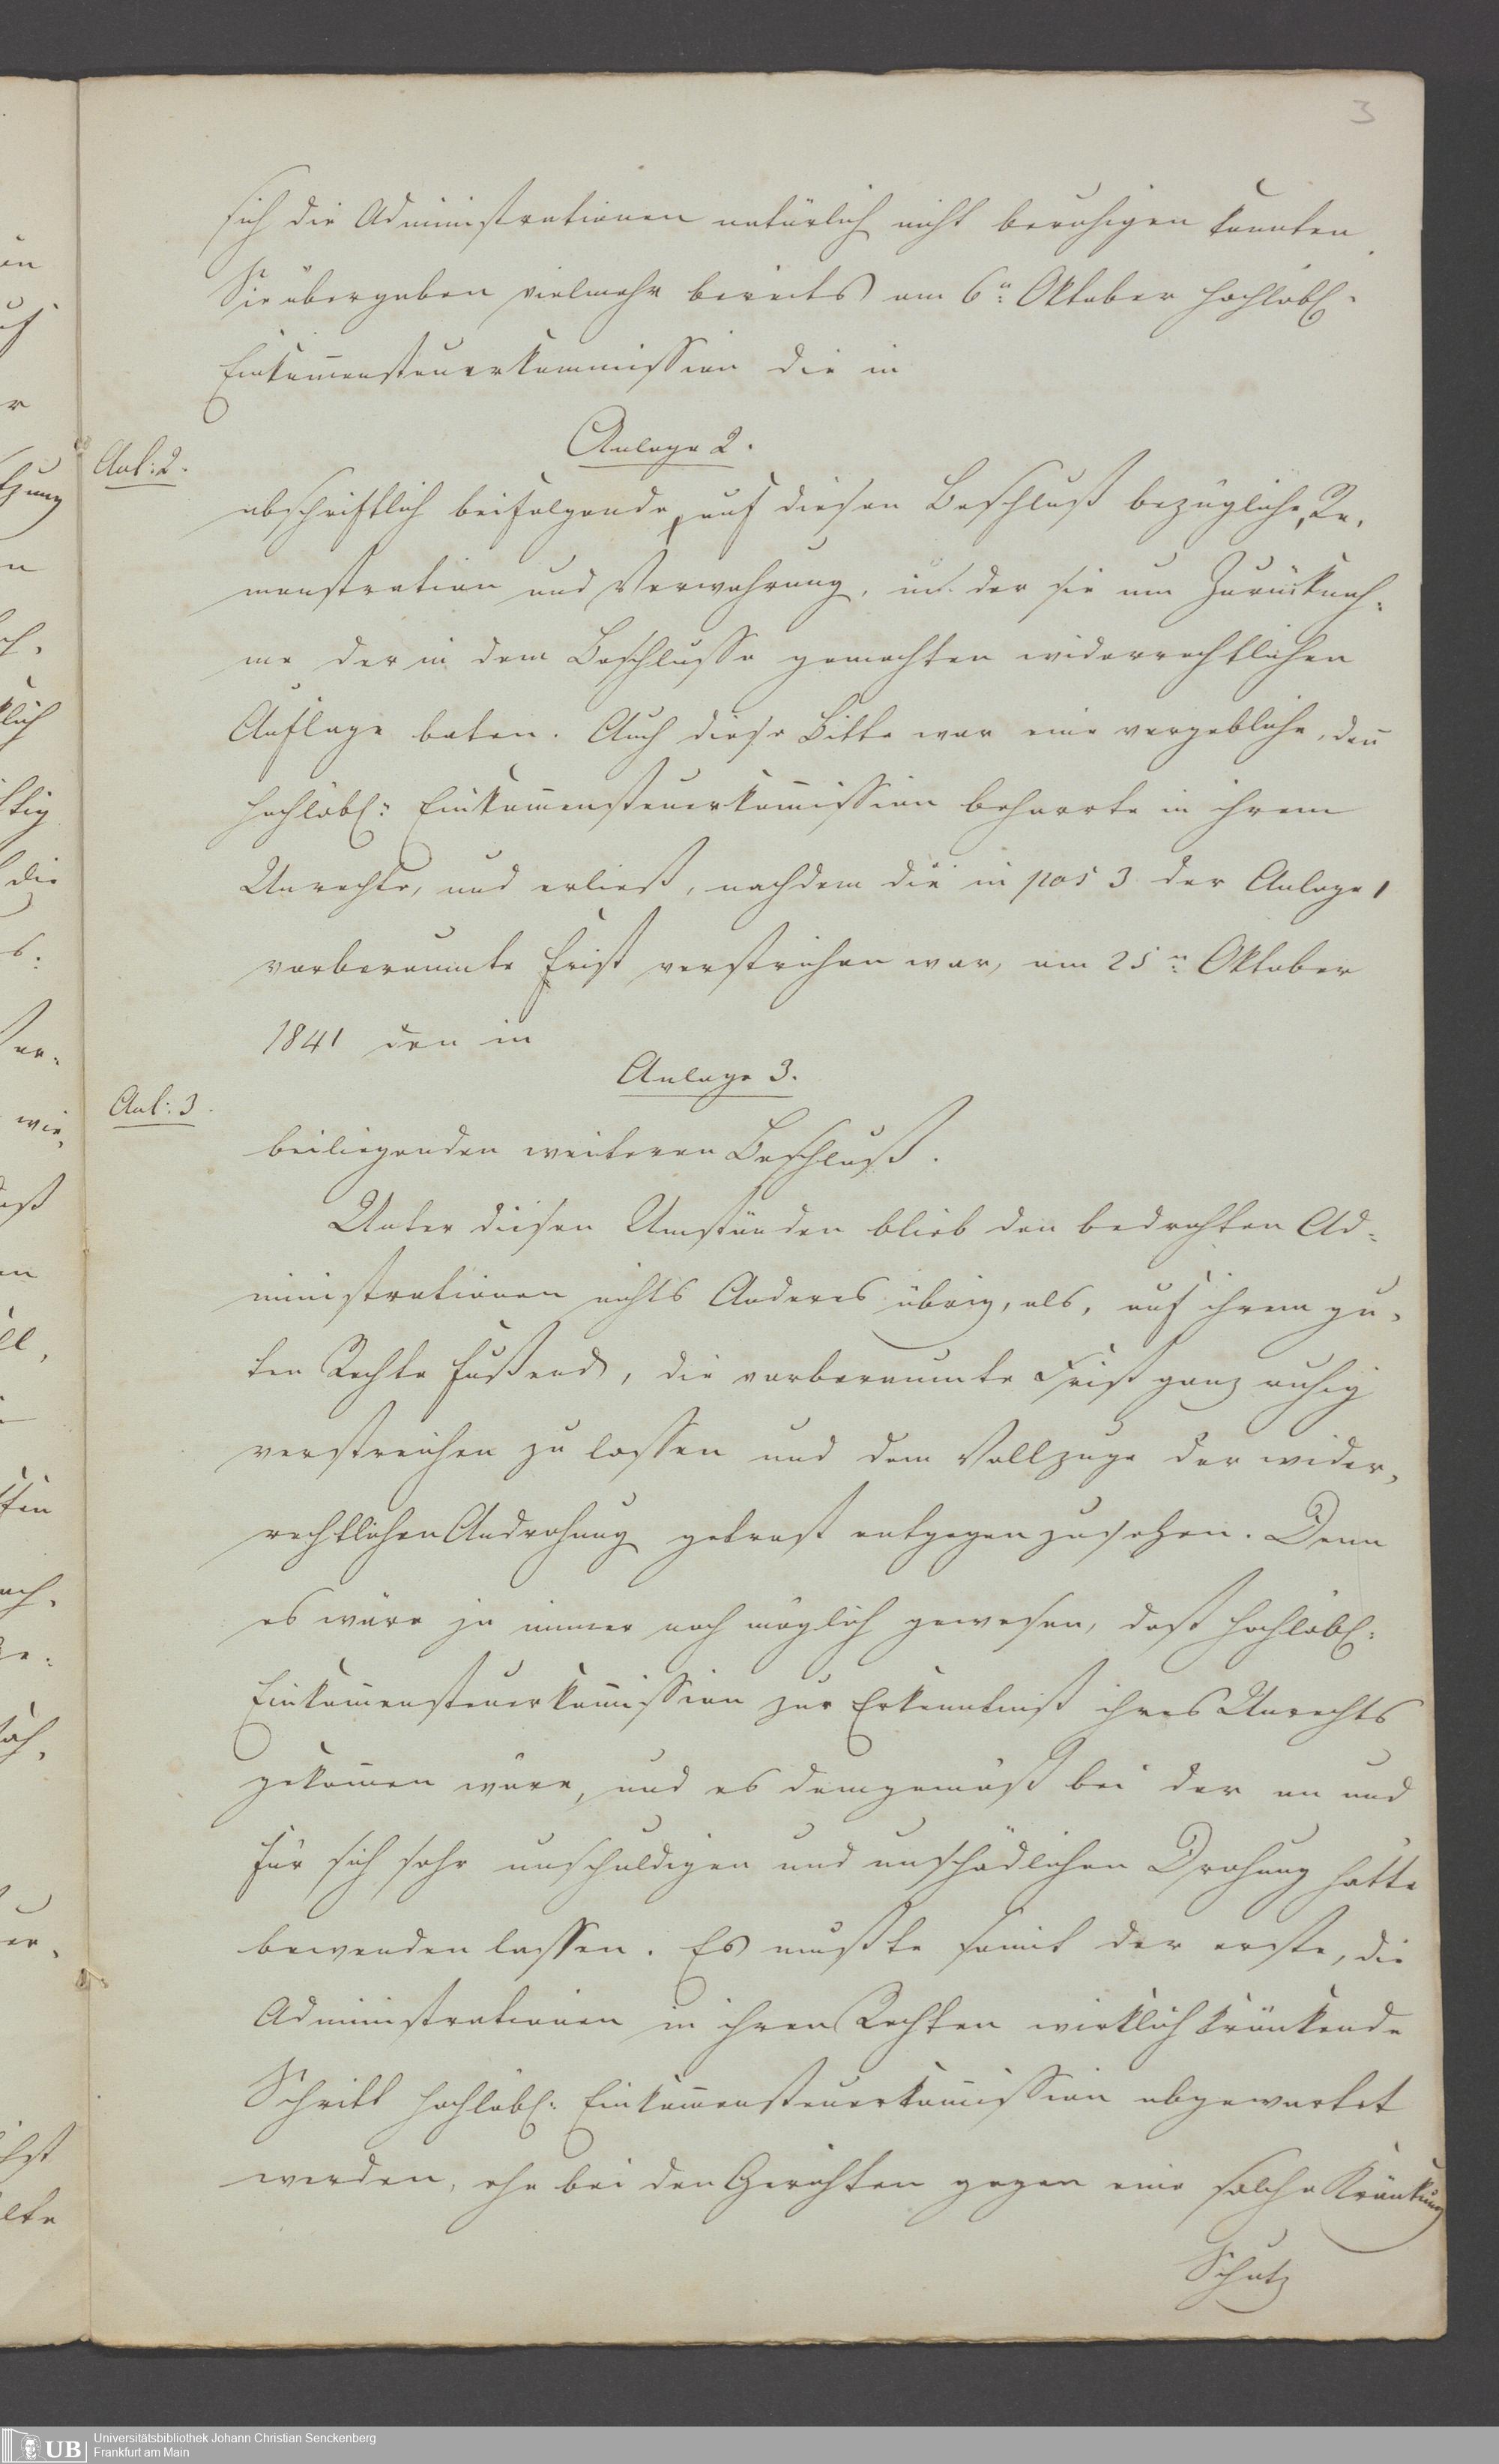 3
sich die Administrationen natürlich nicht beruhigen konnten.
Sie übergaben vielmehr bereits am 6n: Oktober hochlöbl:
Einkom̄ensteuerkommission die in
Anlage 2.
Anl: 2.
abschriftlich beifolgende, auf diesen Beschluß bezügliche, Re-
monstration und Verwahrung, in der sie um Zurücknah-
me der in dem Beschlusse gemachten widerrechtlichen
Auflage baten. Auch diese Bitte war eine vergebliche, den̄
hochlöbl: Einkom̄ensteuerkom̄ission beharrte in ihrem
Unrechte, und erließ, nachdem die in pos 3 der Anlage 1
vorberaumte Frist verstrichen war, am 25n: Oktober
1841 den in
Anlage 3.
Anl: 3.
beiliegenden weiteren Beschluß.
Unter diesen Umständen blieb den bedrohten Ad-
ministrationen nichts Anderes übrig, als, auf ihrem gu-
ten Rechte fußend, die vorberaumte Frist ganz ruhig
verstreichen zu lassen und dem Vollzuge der wider-
rechtlichen Androhung getrost entgegenzusehen. Denn
es wäre ja immer noch möglich gewesen, daß hochlöbl:
Einkom̄ensteuerkom̄ission zur Erkenntniß ihres Unrechts
gekom̄en wäre, und es demgemäß bei der an und
für sich sehr unschuldigen und unschädlichen Drohung hätte
bewenden lassen. Es mußte somit der erste, die
Administrationen in ihren Rechten wirklich kränkende
Schritt hochlöbl: Einkom̄ensteuerkom̄ission abgewartet
werden, ehe bei den Gerichten gegen eine solche Kränkung
Schutz
UB
Universitätsbibliothek Johann Christian Senckenberg
Frankfurt am Main